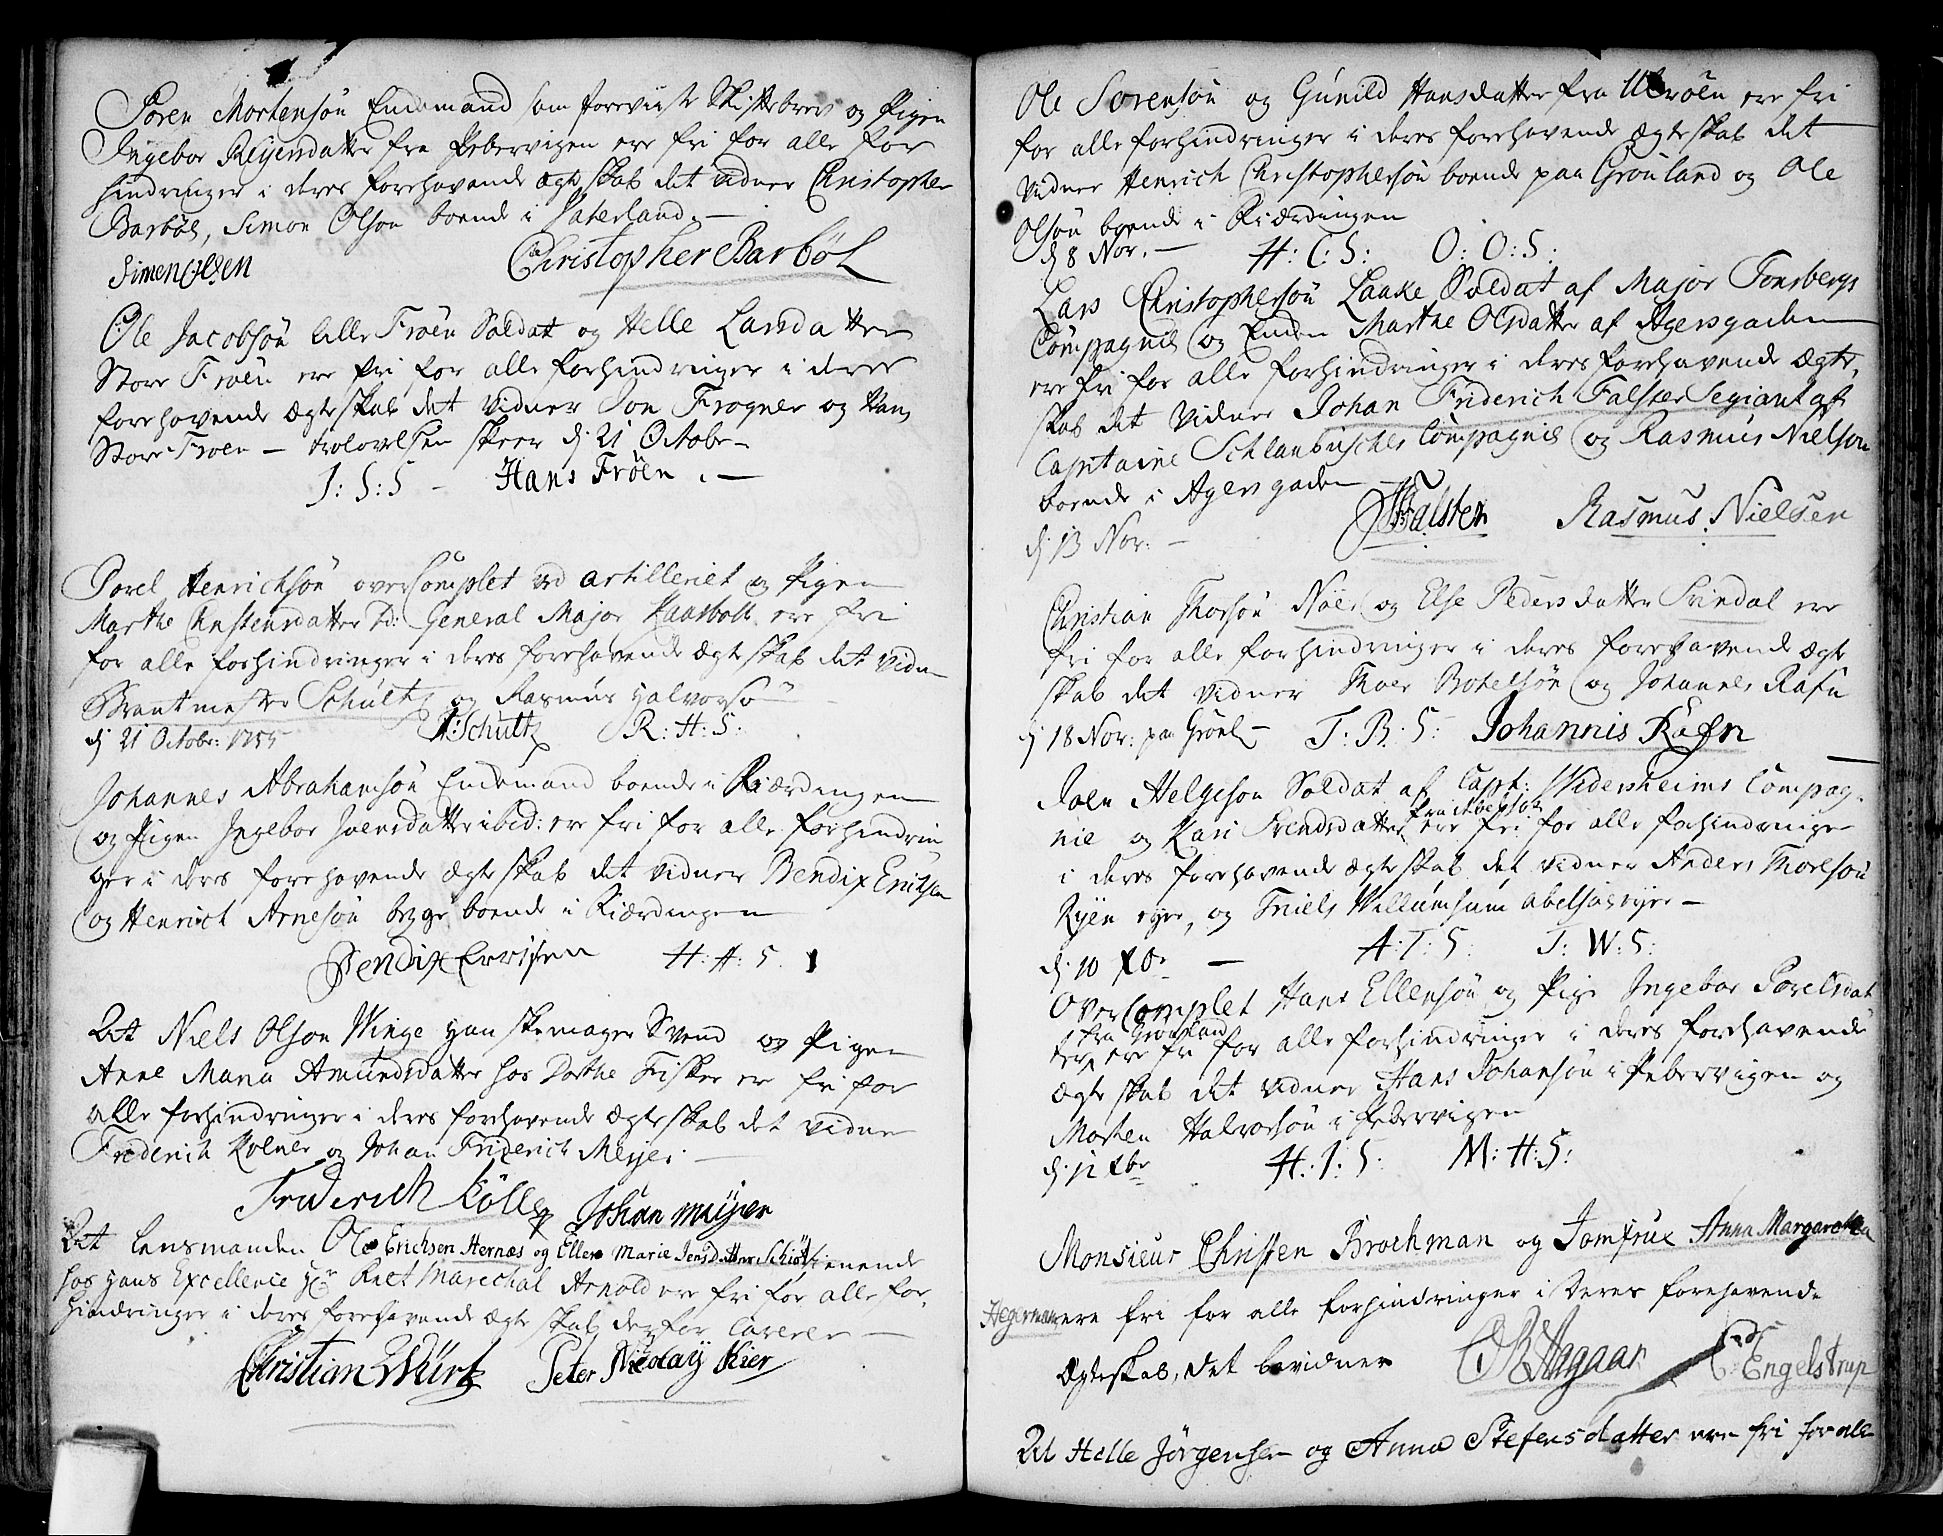 Søren Mortensøn Enckemand som foreviiste Skiftebrev og Pigen
Ingebor Reyersdatter fra Pebervigen ere fri for alle for
hindringer i deres forehavende Ægteskab det vidner Christopher
Barbøl, Simon Olson boende i Vaterland. —
Simen Olsen Christopher Barbøl
Ole Jacobsøn lille Frøen Soldat og Helle Larsdatter
Store Frøen ere fri for alle forhindringer i deres
forehavende Ægteskab det vidner Jon Frogner og Hans
Store Frøen — trolovelsen skeer d: 21 Octobr —
J: S: S — Hans Frøen . —
Porel Henrichsøn overComplet ved artilleriet og Pigen
Marthe Christensdatter td: General Major Kaasbøll ere fri
for alle forhindringer i deres forehavende Ægteskab det vidn
Brantmester Schultz og Rasmus Halvorsøn
d: 21 Octobr: 1755 Schultz R: H: S:
Johannes Abrahamsøn Enckemand boende i Riærdingen
og Pigen Ingebor Joensdatter ibid: ere fri for alle forhindrin
ger i deres forehavende Ægteskab det vidner Bendix Erichsen
og Henrich Arnesøn begge boende i Riærdingen
Bendix Errichsen H: A: S
At Niels Olson Winge Handskemager Svend og Pigen
Anne Maria Amundsdatter hos Dorthe Fisker er fri for
alle forhindringer i deres forehavende Ægteskab det vidner
Friderich Kølner og Johan Friderich Meyer —
Friderich Kølle Johan Meyer
At Lensmanden Ole Erichsen Hernæs og Ellen Marie Jensdatter Schiøtt tienende
hos Hans Excellence Hr Riet Marechal Arnold ere fri for alle for
hindringer i deres forehavende Ægteskab, derfor Caverer —
Christian Würtz Peter Nicolay Kier
Ole Sørensøn og Gunild Hansdatter fra Ulvøen ere fri
for alle forhindringer i deres forehavende Ægteskab det
vidner Henrich Christophersøn boende paa Grønland og Ole
Olsøn boende i Riærdingen
d: 8 Nov. — H: C: S: O: O: S:
Lars Christophersøn Laake Soldat af Major Tonsbergs
Compagnie og Encken Marthe Olsdatter af Agersgaden
ere fri for alle forhindringer i deres forehavende Ægte-
skab det vidner Johan Friderich Falster Segiant af
Capitaine Schlanbusches Compagnie og Rasmus Nielsøn
boende i Agersgaden —
d: 13 Nov: — JFFalster Rasmus Nielsen
Christian Thorsøn Nøes og Else Pedersdatter Svindal ere
fri for alle forhindringer i deres forehavende Ægte
skab det vidner Thoer Botelsøn og Johannes Rafn
d: 18 Nov: paa Grønl — T. B. S: Johannis Rafn
Joen Helgeson Soldat af Capt: Widersheims Compag-
fra Abelsøe
nie og Kari Svendsdatter ere fri for alle forhindringer
i deres forehavende Ægteskab det vidner Anders Thoresøn
Ryen eyer, og Truels Willumsøn abelsøe eyer —
d: 10 Xbr — A: T: S T: W: S:
OverComplet Hans Ellensøn og Pige Ingebor Porelsdat
fra Grønland
ter ere fri for alle forhindringer i deres forehavende
Ægteskab det vidner Hans Johansøn i Pebervigen og
Morten Halvorsøn i Pebervigen
d: 12 Xbr H: J: S: M: H: S:
Monsieur Christen Brochman og Jomfrue Anna Margaretha
Hegerman ere fri for alle forhindringer i Deres forehavende
Ægteskab, det bevidner Aagaar Engelstrup
At Helle Jørgensen og Anna Stefensdatter ere fri for alle